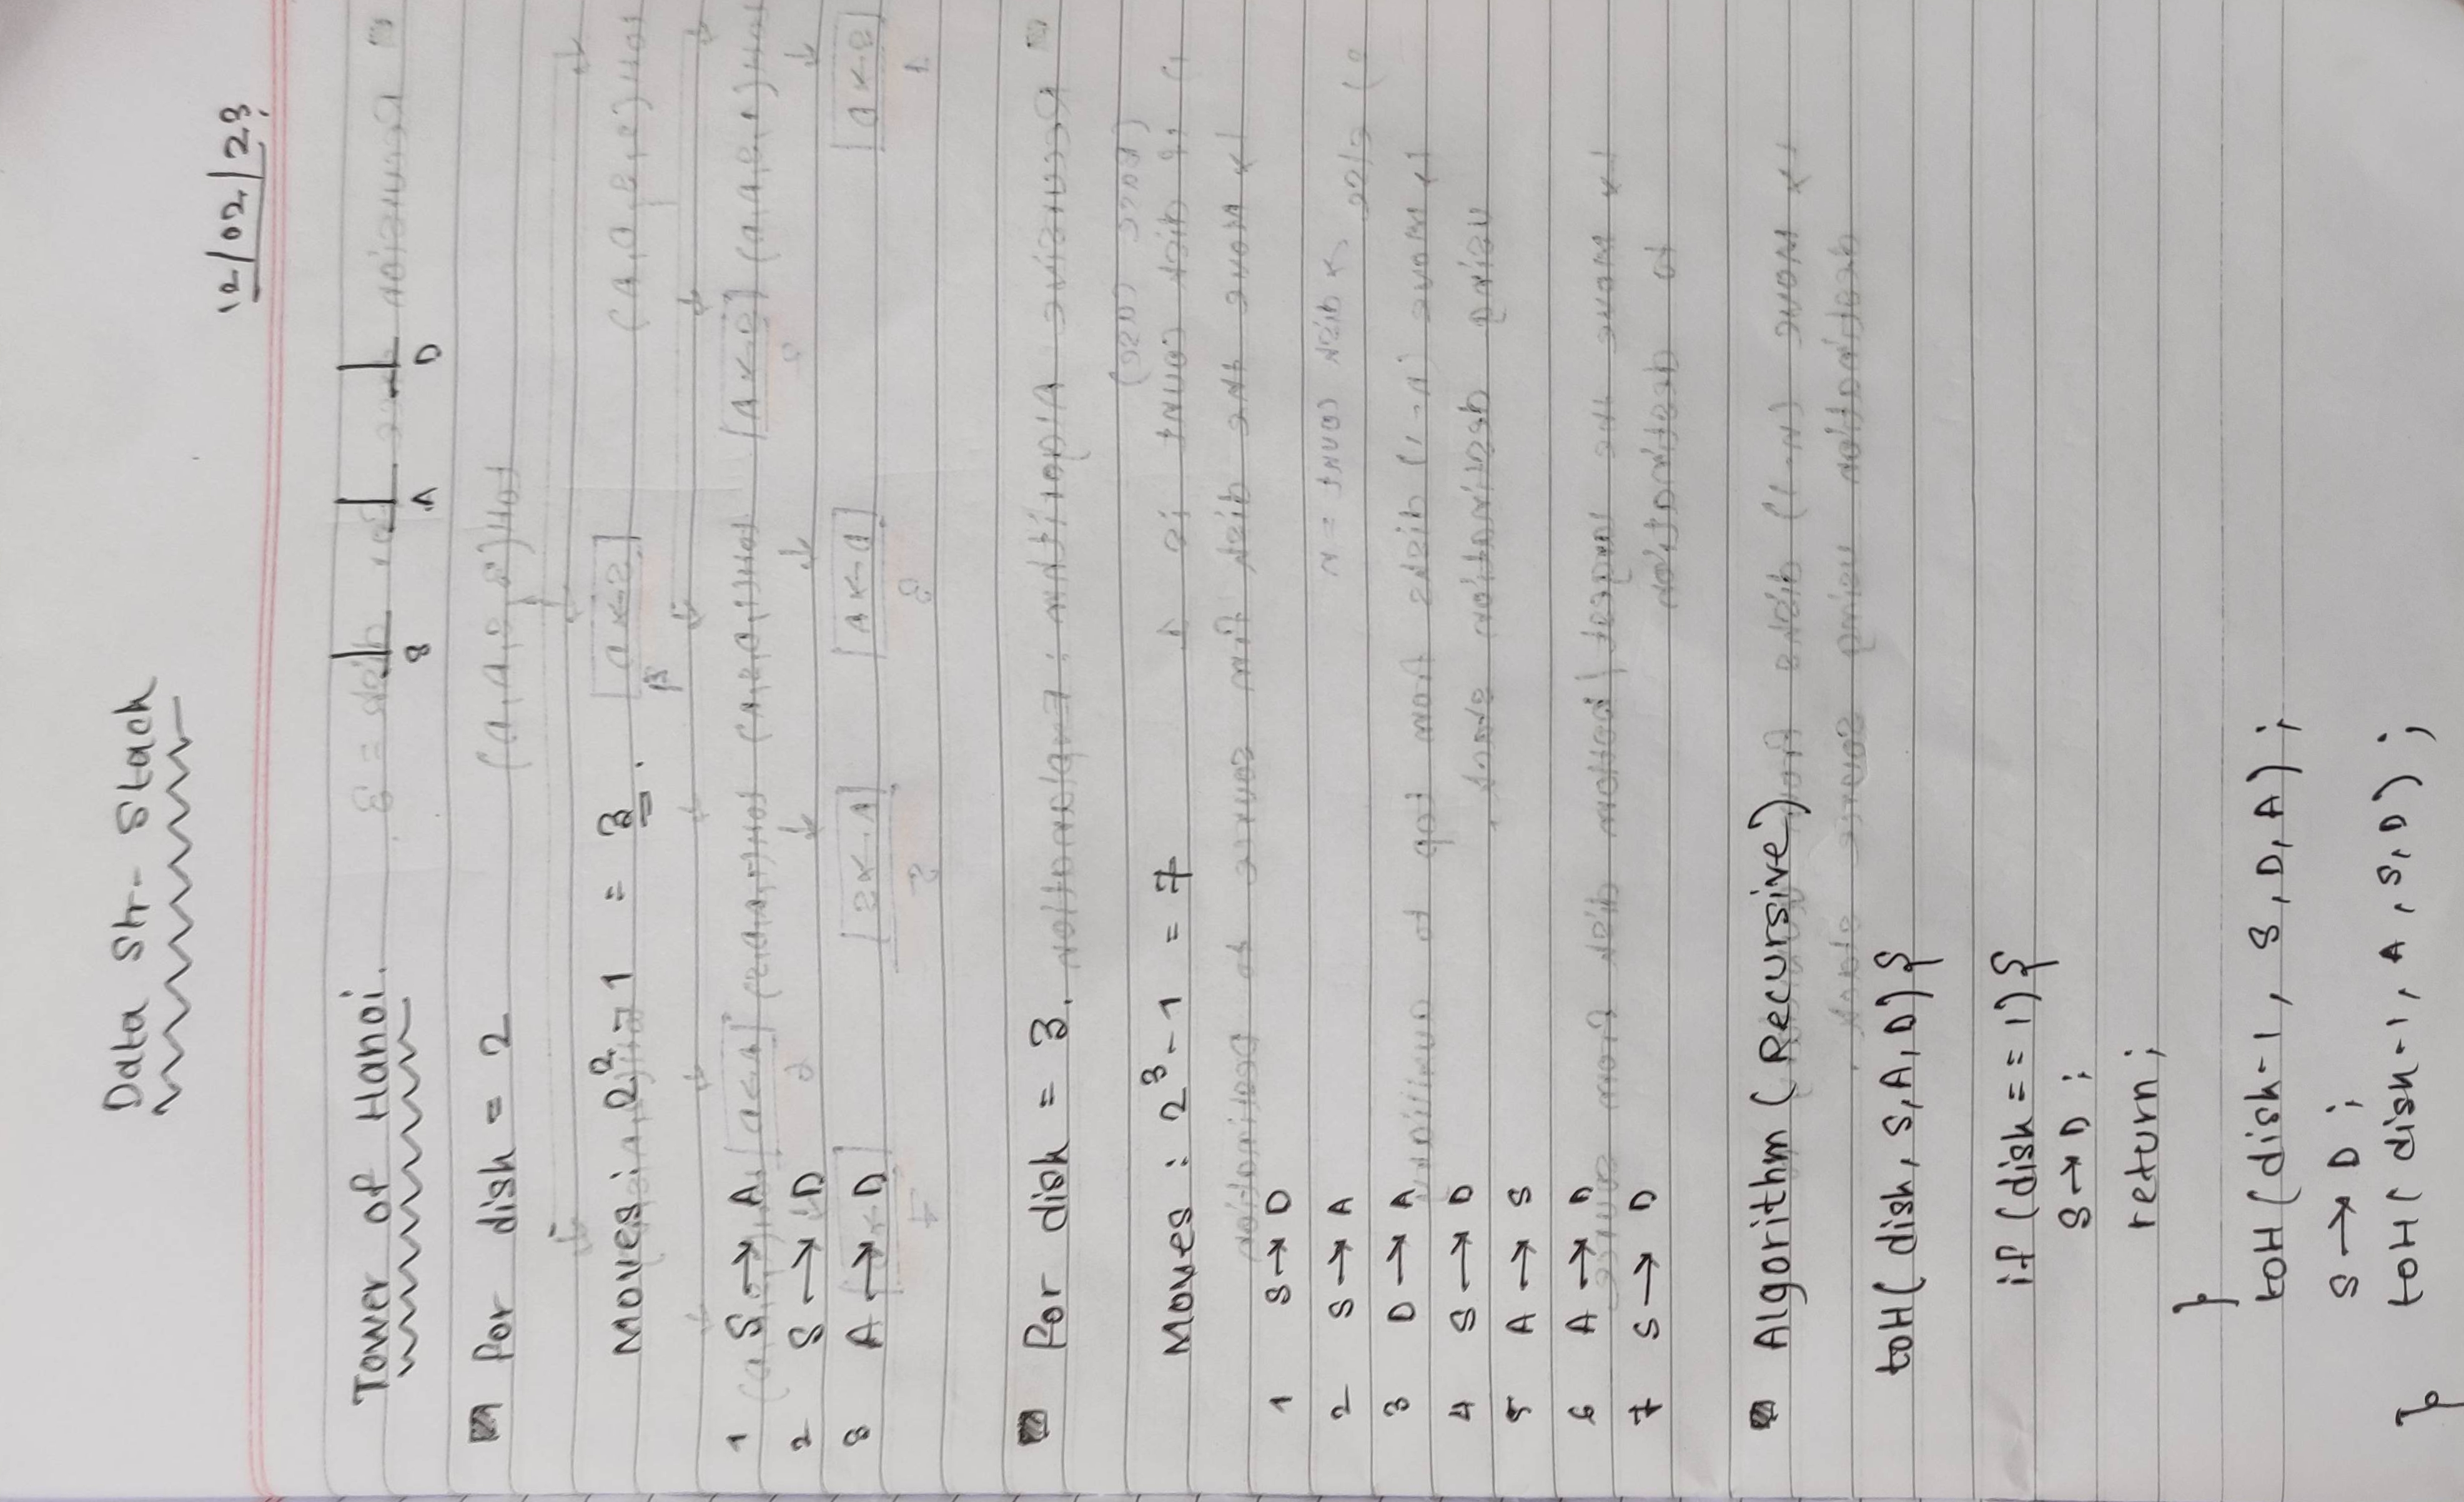 Data Str- Stack
12/02/23
Tower of Hanoi.
S A D
for disk = 2
Moves : 2² - 1 = 3.
1 S → A
2 S → D
3 A → D
for disk = 3.
Moves : 2³ - 1 = 7
1 S → D
2 S → A
3 D → A
4 S → D
5 A → S
6 A → D
7 S → D
Algorithm (Recursive)
toH( disk, S, A, D) {
if (disk == 1) {
S → D ;
return ;
}
toH (disk-1, S, D, A) ;
S → D ;
toH( disk-1, A, S, D) ;
}